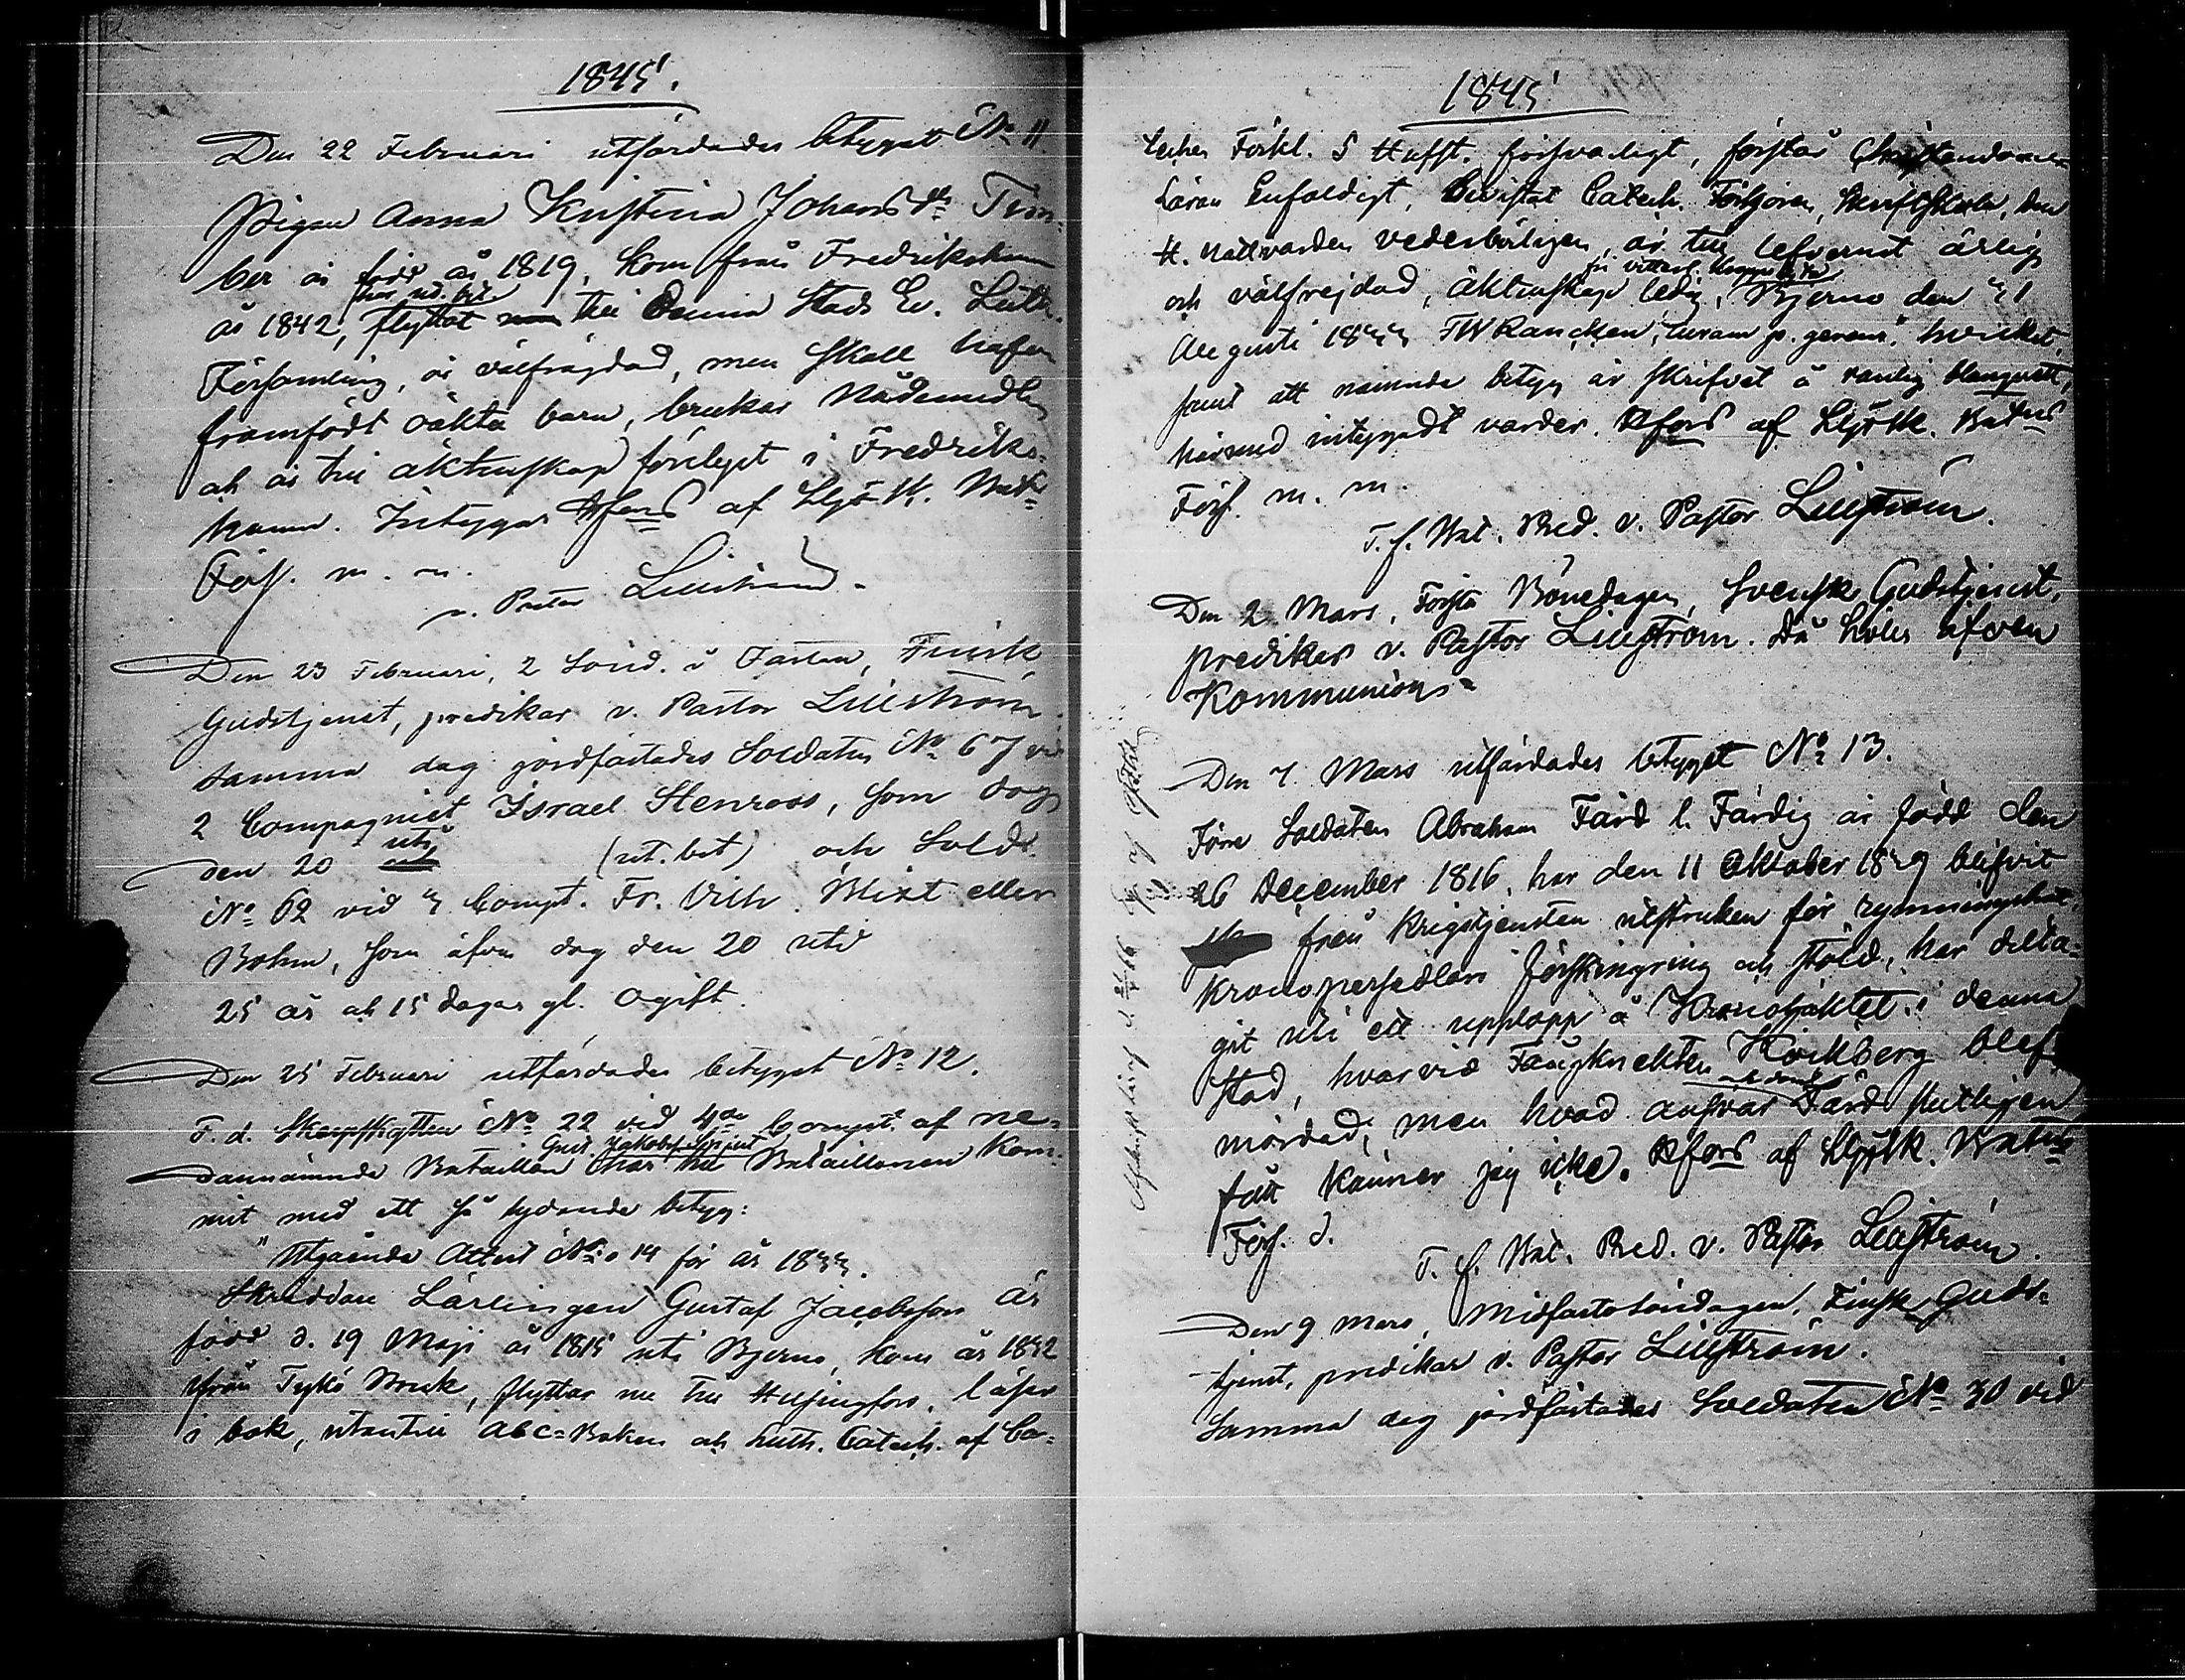 1845.
Den 22 Februari utfärdades betyget No 11.
Pigan Anna Kristina Johansdr Tim-
ber är född år 1819, kom från Fredrikshamn
år 1842, flyttat till denna Stads Ev. Luth.
Församling, är välfrägdad, men skall hafva
framfödt oäkta barn, brukar Nådemedlen
och är till äktenskap förelyst i Fredriks-
hamn. Intygar Hfors af Lifg. Sk. Bat:s
Förs. m. m.
v. Pastor Lilliström.
Den 23 Februari, 2 Sönd. i Fastan, Finsk
Gudstjenst, predikar v. Pastor Lilliström.
Samma dag jordfästades Soldaten No 67 vid
2 Compagniet Israel Stenroos, som dog
den 20 uti (ut. bet) och Sold.
No 62 vid 3 Compt. Fr. Vilh. Blixt eller
Bohm, som äfven dog den 20 uti
25 år och 15 dagar gl. Ogift.
Den 25 Februari utfärdades betyget No 12.
F. d. Skarpskytten No 22 vid 4de Compt. af ne-
Gust. Jakobsf. Spjut
dannämnde Bataillon har till Bataillonen kom-
mit med ett så lydande betyg:
"Utgående Attest No 14 för år 1833.
Skräddare Lärlingen Gustaf Jacobsson är
född d. 19 Maji år 1815 uti Bjerno, kom år 1832
ifrån Tykö Bruk, flyttar nu till Helsingfors, läser
i bok, utantill ABC-Boken och Luth. Catech. af Ca-
1845
teches Förkl. S Hufst. försvarligt, förstår Christendoms
Läran Enfaldigt, bevistat Catech. Förhören, Skriftskola, den
H. Nattvarden vederbörligen, är till lefvernet ärlig
och välfrejdad, äktenskaps ledig, Bjerno den 31
Augusti 1833 FW Rancken, hvilket
samt att nämnde betyg är skrifvet å vanlig blanquett,
härmed intygadt varder. Hfors af Lifg. Sk. Bat:ns
Förs. m. m.
T. f. Bat. Pred. v. Pastor Lilliström.
Den 2 Mars, Första Bönedagen, Svensk Gudstjenst,
predikar v. Pastor Lilliström. Då hölls äfven
Kommunion.
Den 7 Mars utfärdades betyget No 13.
Förre Soldaten Abraham Färd l. Färdig är född den
26 December 1816, har den 11 Oktober 1839 blifvit
från Krigstjensten utstruken för rymning,
Kronopersedlars förskingring och stöld, har delta-
git uti ett upplopp å Kronohäktet i denna
stad, hvarvid Fångknekten Kvickberg blef
mördad; men hvad ansvar Färd slutligen
fått känner jag icke. Hfors af Lifg. Sk. Bat:ns
Förs. d.
T. f. Bat. Pred. v. Pastor Lilliström.
Den 9 Mars, Midfastosöndagen, Finsk Guds-
tjenst, predikar v. Pastor Lilliström.
Samma dag jordfästades Soldaten No 30 vid